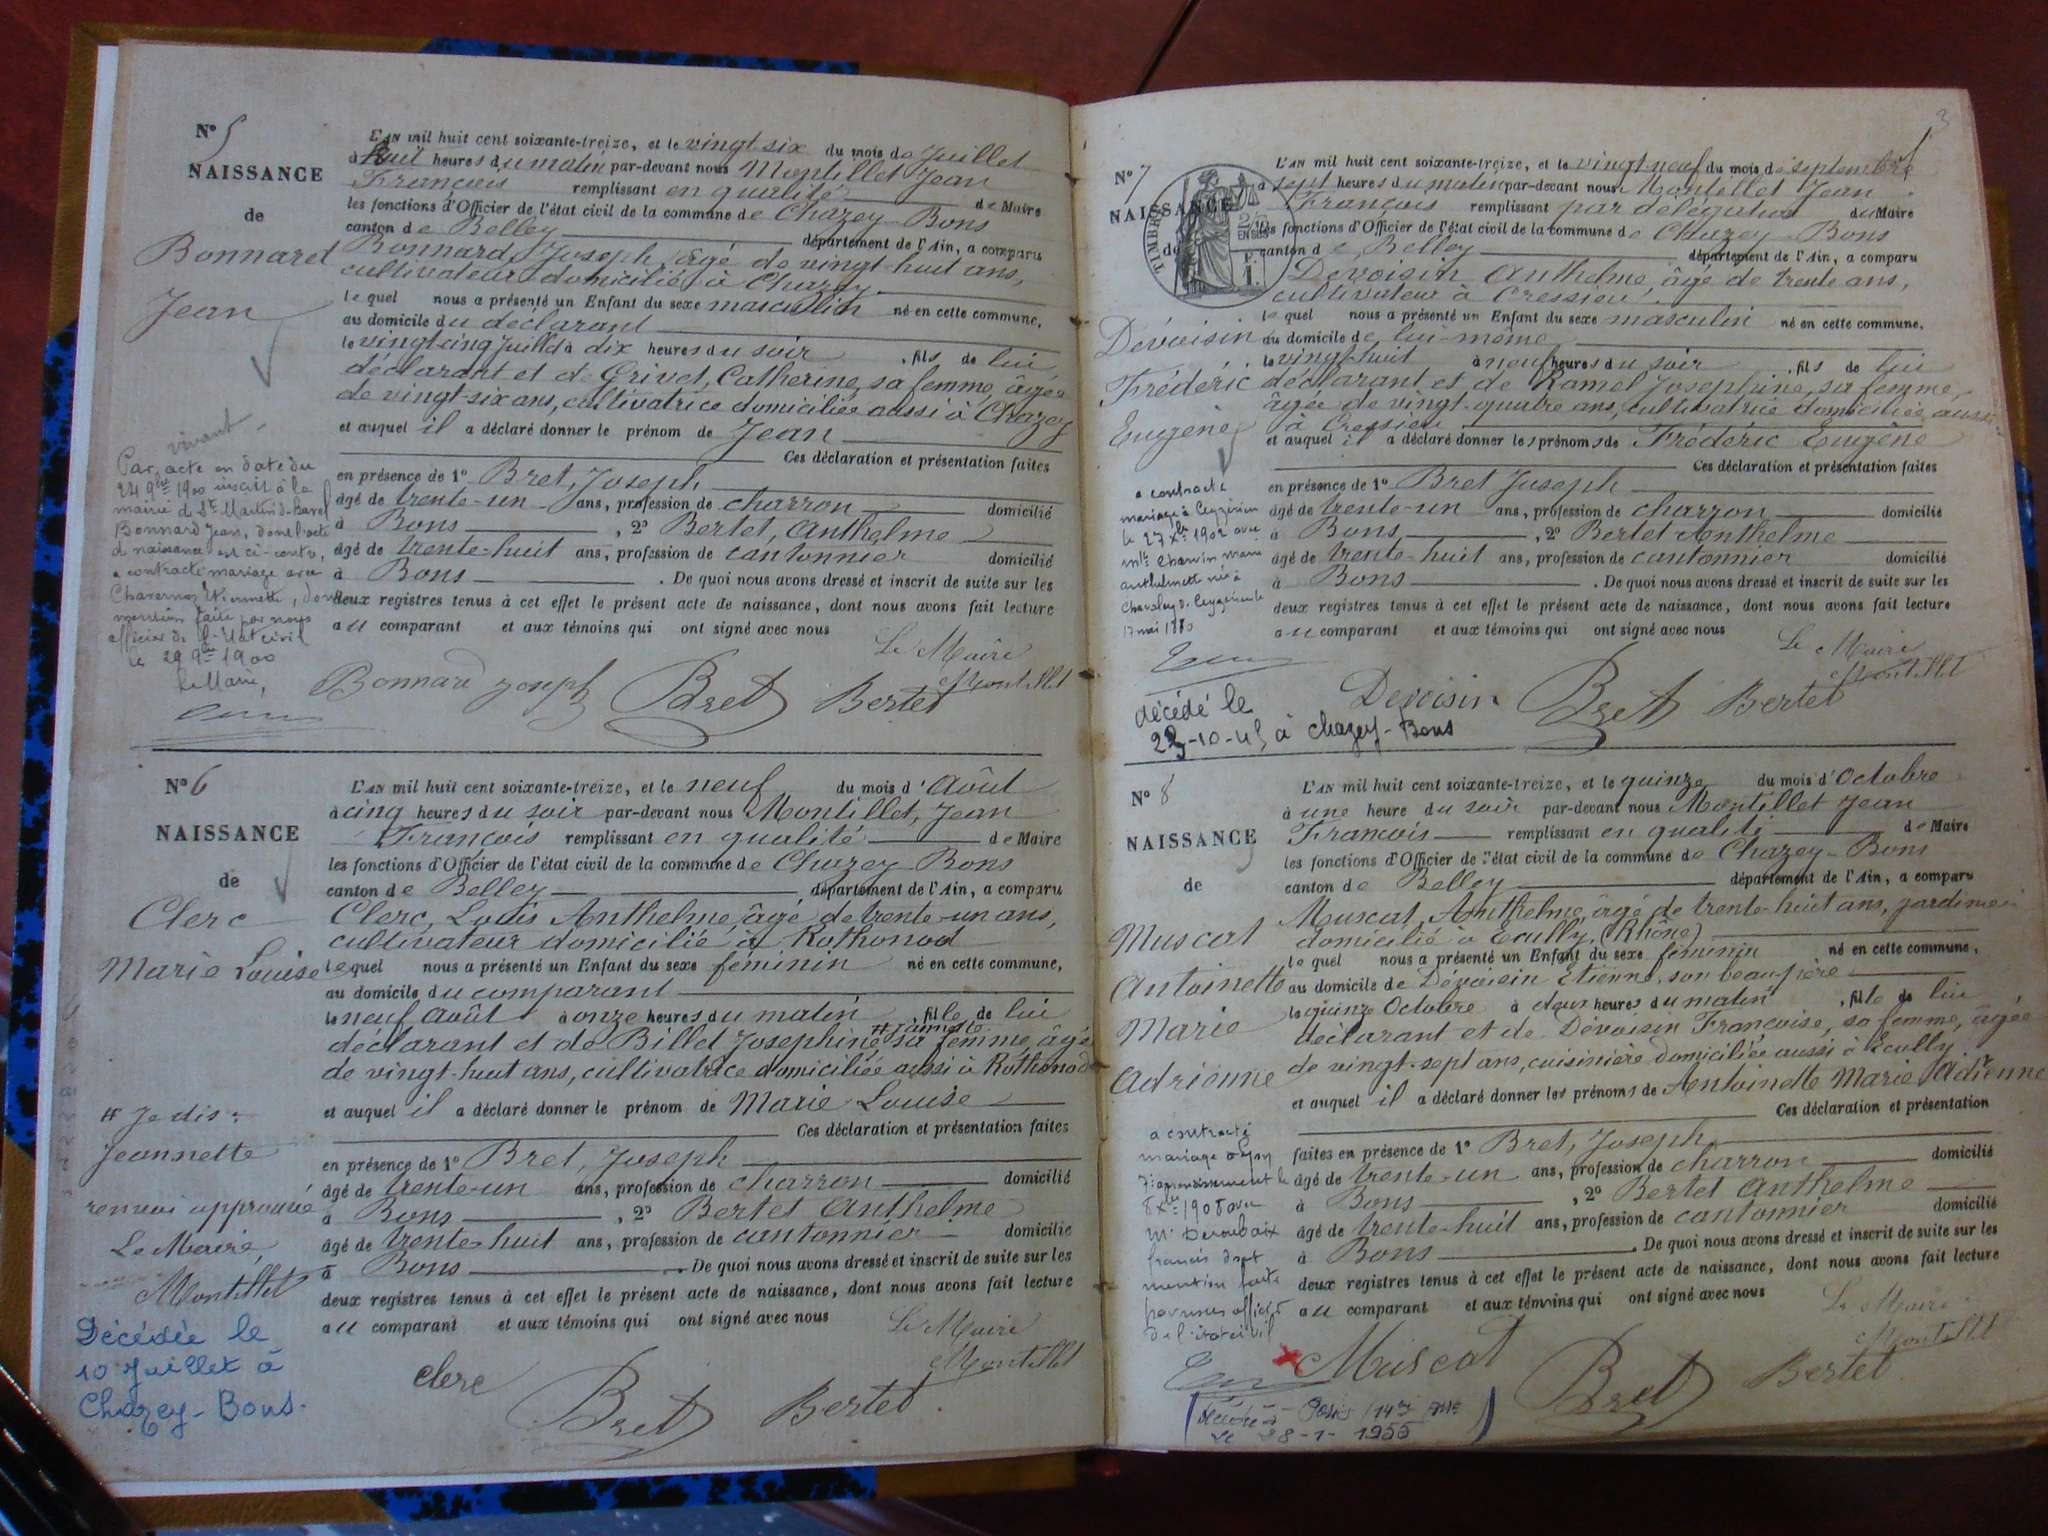 N° 5
NAISSANCE
de
Bonnard
Jean
L'AN mil huit cent soixante-treize, et le vingt-six du mois de Juillet
à huit heures du matin par-devant nous Montillet Jean
François remplissant en qualité de Maire
les fonctions d'Officier de l'état civil de la commune de Chazey-Bons
canton de Belley département de l'Ain, a comparu
Bonnard, Joseph, âgé de vingt-huit ans,
cultivateur domicilié à Chazey
lequel nous a présenté un Enfant du sexe masculin né en cette commune,
au domicile du déclarant
le vingt-cinq Juillet à dix heures du soir, fils de lui
déclarant et de Grivet, Catherine, sa femme, âgée
de vingt-six ans, cultivatrice domiciliée aussi à Chazey
et auquel il a déclaré donner le prénom de Jean
Ces déclaration et présentation faites
en présence de 1° Bret, Joseph
âgé de trente-un ans, profession de charron domicilié
à Bons, 2° Bertet, Anthelme
âgé de trente-huit ans, profession de cantonnier domicilié
à Bons. De quoi nous avons dressé et inscrit de suite sur les
deux registres tenus à cet effet le présent acte de naissance, dont nous avons fait lecture
au comparant et aux témoins qui ont signé avec nous
Le Maire
Bonnard Joseph Bret Bertet Montillet
vivant
Par acte en date du
24 9bre 1900 inscrit à la
mairie de St Martin-d-Bavel
Bonnard Jean, dont l'acte
de naissance est ci-contre,
a contracté mariage avec
Chavernoz, dont
mention faite par nous
officier de l'Etat civil
le 29 9bre 1900
Le Maire,
N° 6
NAISSANCE
de
Clerc
Marie Louise
L'AN mil huit cent soixante-treize, et le neuf du mois d'Août
à cinq heures du soir par-devant nous Montillet, Jean
François remplissant en qualité de Maire
les fonctions d'Officier de l'état civil de la commune de Chazey Bons
canton de Belley, département de l'Ain, a comparu
Clerc, Louis Anthelme, âgé de trente-un ans,
cultivateur domicilié à Rothonod
lequel nous a présenté un Enfant du sexe féminin né en cette commune,
au domicile du comparant
le neuf Août à onze heures du matin, fille de lui
déclarant et de Billet Josephine # sa femme, âgée
de vingt-huit ans, cultivatrice domiciliée aussi à Rothonod
et auquel il a déclaré donner le prénom de Marie Louise
Ces déclaration et présentation faites
en présence de 1° Bret, Joseph
âgé de trente-un ans, profession de charron domicilié
à Bons, 2° Bertet Anthelme
âgé de trente-huit ans, profession de cantonnier domicilié
à Bons. De quoi nous avons dressé et inscrit de suite sur les
deux registres tenus à cet effet le présent acte de naissance, dont nous avons fait lecture
au comparant et aux témoins qui ont signé avec nous
Le Maire
Clerc Bret Bertet Montillet
# Je dis:
Jeannette
renvoi approuvé
Le Maire,
Montillet
Décédée le
10 Juillet à
Chazey-Bons.
3
N° 7
NAISSANCE
de
TIMBRE
Dévoisin
Frédéric
Eugène
L'AN mil huit cent soixante-treize, et le vingt-neuf du mois de septembre
à sept heures du matin par-devant nous Montillet Jean
François remplissant par délégation du Maire
les fonctions d'Officier de l'état civil de la commune de Chazey-Bons
canton de Belley département de l'Ain, a comparu
Devoisin Anthelme, âgé de trente ans,
cultivateur à Cressieu,
lequel nous a présenté un Enfant du sexe masculin né en cette commune,
au domicile de lui-même
le vingt-huit à neuf heures du soir, fils de lui
déclarant et de Ramel Josephine, sa femme,
âgée de vingt-quatre ans, cultivatrice domiciliée aussi
à Cressieu
et auquel il a déclaré donner les prénoms de Frédéric Eugène
Ces déclaration et présentation faites
en présence de 1° Bret Joseph
âgé de trente-un ans, profession de charron domicilié
à Bons, 2° Bertet Anthelme
âgé de trente-huit ans, profession de cantonnier domicilié
à Bons. De quoi nous avons dressé et inscrit de suite sur les
deux registres tenus à cet effet le présent acte de naissance, dont nous avons fait lecture
au comparant et aux témoins qui ont signé avec nous
Le Maire
Devoisin Bret Bertet Montillet
a contracté
mariage à Ceyzérieu
le 27 Xbre 1902 avec
Mlle Charvin Marie
anthelmette née à
17 mai 1880
décédé le
23-10-45 à Chazey-Bons
N° 8
NAISSANCE
de
Muscat
Antoinette
Marie
Adrienne
L'AN mil huit cent soixante-treize, et le quinze du mois d'Octobre
à une heure du soir par-devant nous Montillet Jean
François remplissant en qualité de Maire
les fonctions d'Officier de l'état civil de la commune de Chazey-Bons
canton de Belley département de l'Ain, a comparu
Muscat, Anthelme, âgé de trente-huit ans, jardinier
domicilié à Ecully, (Rhône)
lequel nous a présenté un Enfant du sexe féminin né en cette commune,
au domicile de Dévoisin Etienne, son beau-père
le quinze Octobre à deux heures du matin, fille de lui
déclarant et de Dévoisin Françoise, sa femme, âgée
de vingt-sept ans, cuisinière domiciliée aussi à Ecully
et auquel il a déclaré donner les prénoms de Antoinette Marie Adrienne
Ces déclaration et présentation
faites en présence de 1° Bret, Joseph
âgé de trente-un ans, profession de charron domicilié
à Bons, 2° Bertet Anthelme
âgé de trente-huit ans, profession de cantonnier domicilié
à Bons. De quoi nous avons dressé et inscrit de suite sur les
deux registres tenus à cet effet le présent acte de naissance, dont nous avons fait lecture
au comparant et aux témoins qui ont signé avec nous
Le Maire
Muscat Bret Bertet Montillet
a contracté
mariage à Lyon
7e arrondissement le
8 Xbre 1908 avec
Mr Deroubaix
francis dont
mention faite
par nous officier
de l'état civil
Paris (14e)
le 28-1-1955